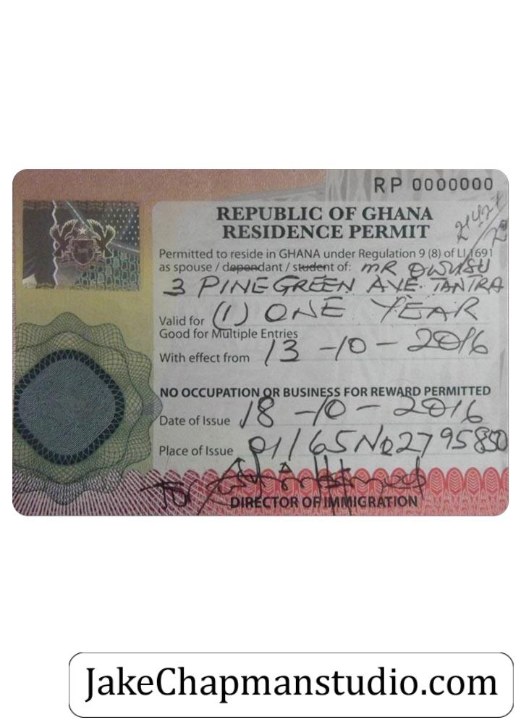 RP 0000000
REPUBLIC OF GHANA
RESIDENCE PERMIT
Permitted to reside in GHANA under Regulation 9 (8) of LI 1691
as spouse / dependant / student of: MR OWUSU
3 PINEGREEN AVE. TANTRA
Valid for (1) ONE YEAR
Good for Multiple Entries
With effect from 13-10-2016
NO OCCUPATION OR BUSINESS FOR REWARD PERMITTED
Date of Issue 18-10-2016
Place of Issue
DIRECTOR OF IMMIGRATION
JakeChapmanstudio.com